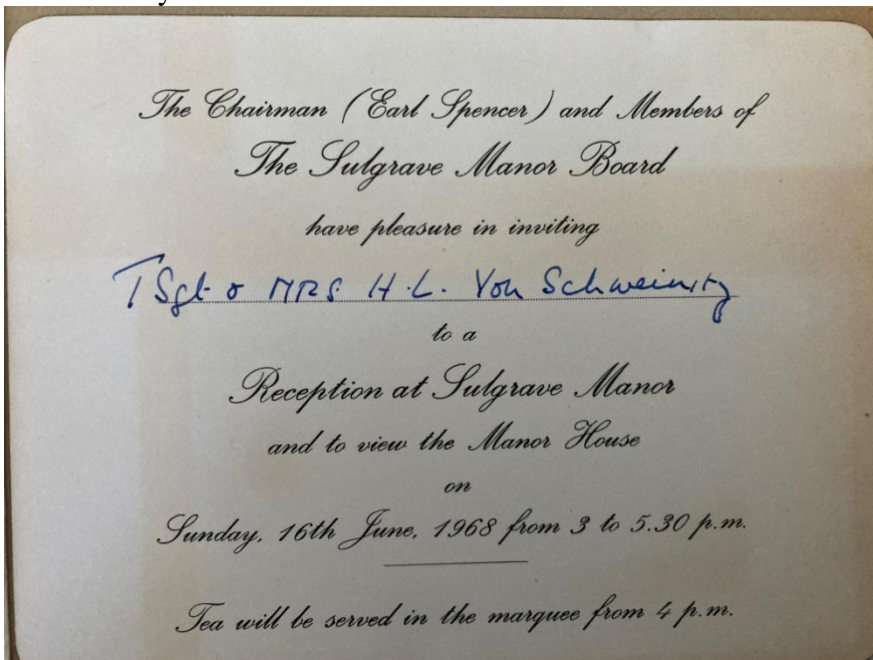 The Chairman (Earl Spencer) and Members of
The Sulgrave Manor Board
have pleasure in inviting
T Sgt & MRS H.L. Von Schweinitz
to a
Reception at Sulgrave Manor
and to view the Manor House
on
Sunday, 16th June, 1968 from 3 to 5.30 p.m.
Tea will be served in the marquee from 4 p.m.